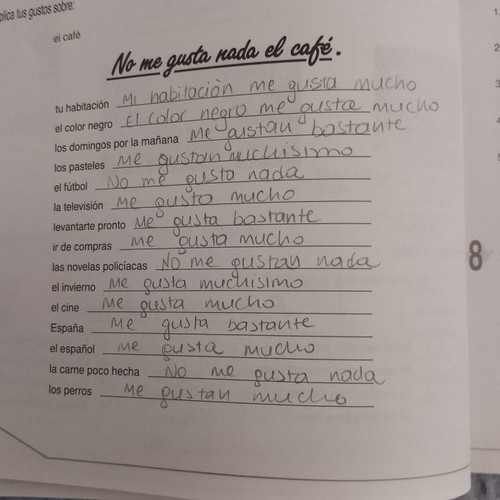 plica tus gustos sobre:
el café
No me gusta nada el café.
tu habitación Mi habitaciòn me gusta mucho
el color negro El color negro me gusta mucho
los domingos por la mañana Me gustan bastante
los pasteles Me gustan muchisimo
el fútbol No me gusto nada
la televisión Me gusto mucho
levantarte pronto Me gusta bastante
ir de compras me gusta mucho
las novelas policíacas No me gustan nada
el invierno Me gusta muchisimo
el cine Me gusta mucho
España Me gusta bastante
el español me gusta mucho
la carne poco hecha No me gusta nada
los perros Me gustan mucho
8